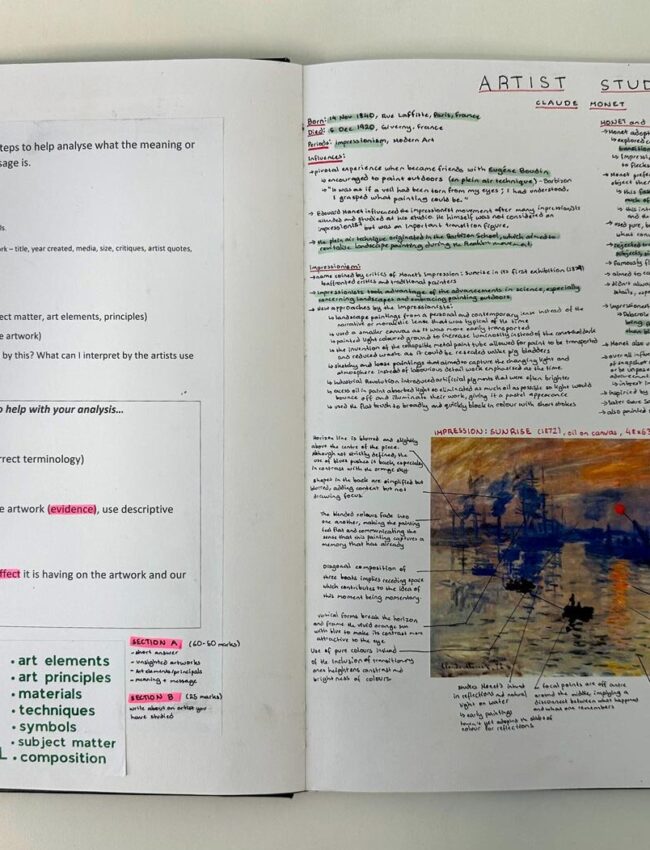 steps to help analyse what the meaning or
sage is.
ls.
rk – title, year created, media, size, critiques, artist quotes,
ect matter, art elements, principles)
e artwork)
by this? What can I interpret by the artists use
o help with your analysis...
rrect terminology)
e artwork (evidence), use descriptive
ffect it is having on the artwork and our
• art elements
• art principles
• materials
• techniques
• symbols
• subject matter
L • composition
SECTION A (60-80 marks)
- short answer
- unsighted artworks
- Art elements/principals
- meaning + message
SECTION B (25 marks)
write about an artist you
have studied
ARTIST STUD
CLAUDE MONET
Born: 14 Nov 1840, Rue Laffitte, Paris, France
Died: 5 Dec 1920, Giverny, France
Periods: Impressionism, Modern Art
Influences:
→ pivotal experience when became friends with Eugène Boudin
↳ encouraged to paint outdoors (en plein air technique) - Barbizon
↳ "It was as if a veil had been torn from my eyes; I had understood,
I grasped what painting could be."
→ Edward Manet influenced the impressionist movement after many impressionists
and studied at his studio. He himself was not considered an
impressionist but was an important transition figure,
→ the plein air technique originated in the Barbizon School, which aimed to
revitalise landscape painting during the Realism movement
Impressionism:
→ name coined by critics of Monet's Impression: Sunrise in its first exhibition (1874)
→ affronted critics and traditional painters
→ Impressionists took advantage of the advancements in science, especially
concerning landscapes and embracing painting outdoors
→ New approaches by the Impressionists:
↳ landscape paintings from a personal and contemporary lens instead of the
narrative or moralistic lense that was typical of the time
↳ used a smaller canvas as it was more easily transported
↳ painted light coloured ground to increase luminosity instead of the
↳ the invention of the collapsible metal paint tube allowed for paint to be transported
and reduced waste as it could be resealed unlike pig bladders
↳ sketchy and loose paintings that aimed to capture the changing light and
atmosphere instead of laborious detail work emphasised at the time
↳ Industrial Revolution introduced artificial pigments that were often brighter
↳ excess oil in paint absorbed light so eliminated as much oil as possible so light would
bounce off and illuminate their work, giving it a pastel appearance
↳ used the flat brush to broadly and quickly block in colour with short strokes
MONET and
→ Monet adopt
↳ explored
transition
↳ Impressi
to flecks
→ Monet prefe
object them
↳ this
much of
↳ this int
and the
→ used pure, b
what con
→ rejected tra
→ Famously
→ aimed to ca
→ didn't alwa
details, espe
→ Impressionis
→ Monet also
→ over all infl
of snapshot
or be unpos
advancement
→ Inspired by
→ later
→ also painted
IMPRESSION: SUNRISE (1872), oil on canvas, 48x63
Horizon line is blurred and slightly
above the centre of the piece.
Although not strictly defined, the
use of blues pushes it back, especially
in contrast with the orange sky.
shapes in the back are simplified but
blurred, adding context but not
drawing focus.
The blended colours fade into
one another, making the painting
feel flat and communicating the
sense that this painting captures a
memory that has already
Diagonal composition of
three boats implies receding space
which contributes to the idea of
this moment being momentary.
vertical forms break the horizon
and frame the vivid orange sun
with blue to make its contrast more
attractive to the eye
Use of pure colours instead
of the inclusion of transitionary
ones heightens contrast and
brightness of colours.
studies Monet's intent
in reflections and natural
light on water
is early painting
hasn't yet adopted the idea of
colour for reflections
focal points are off centre
around the middle, implying a
disconnect between what happened
and what one remembers